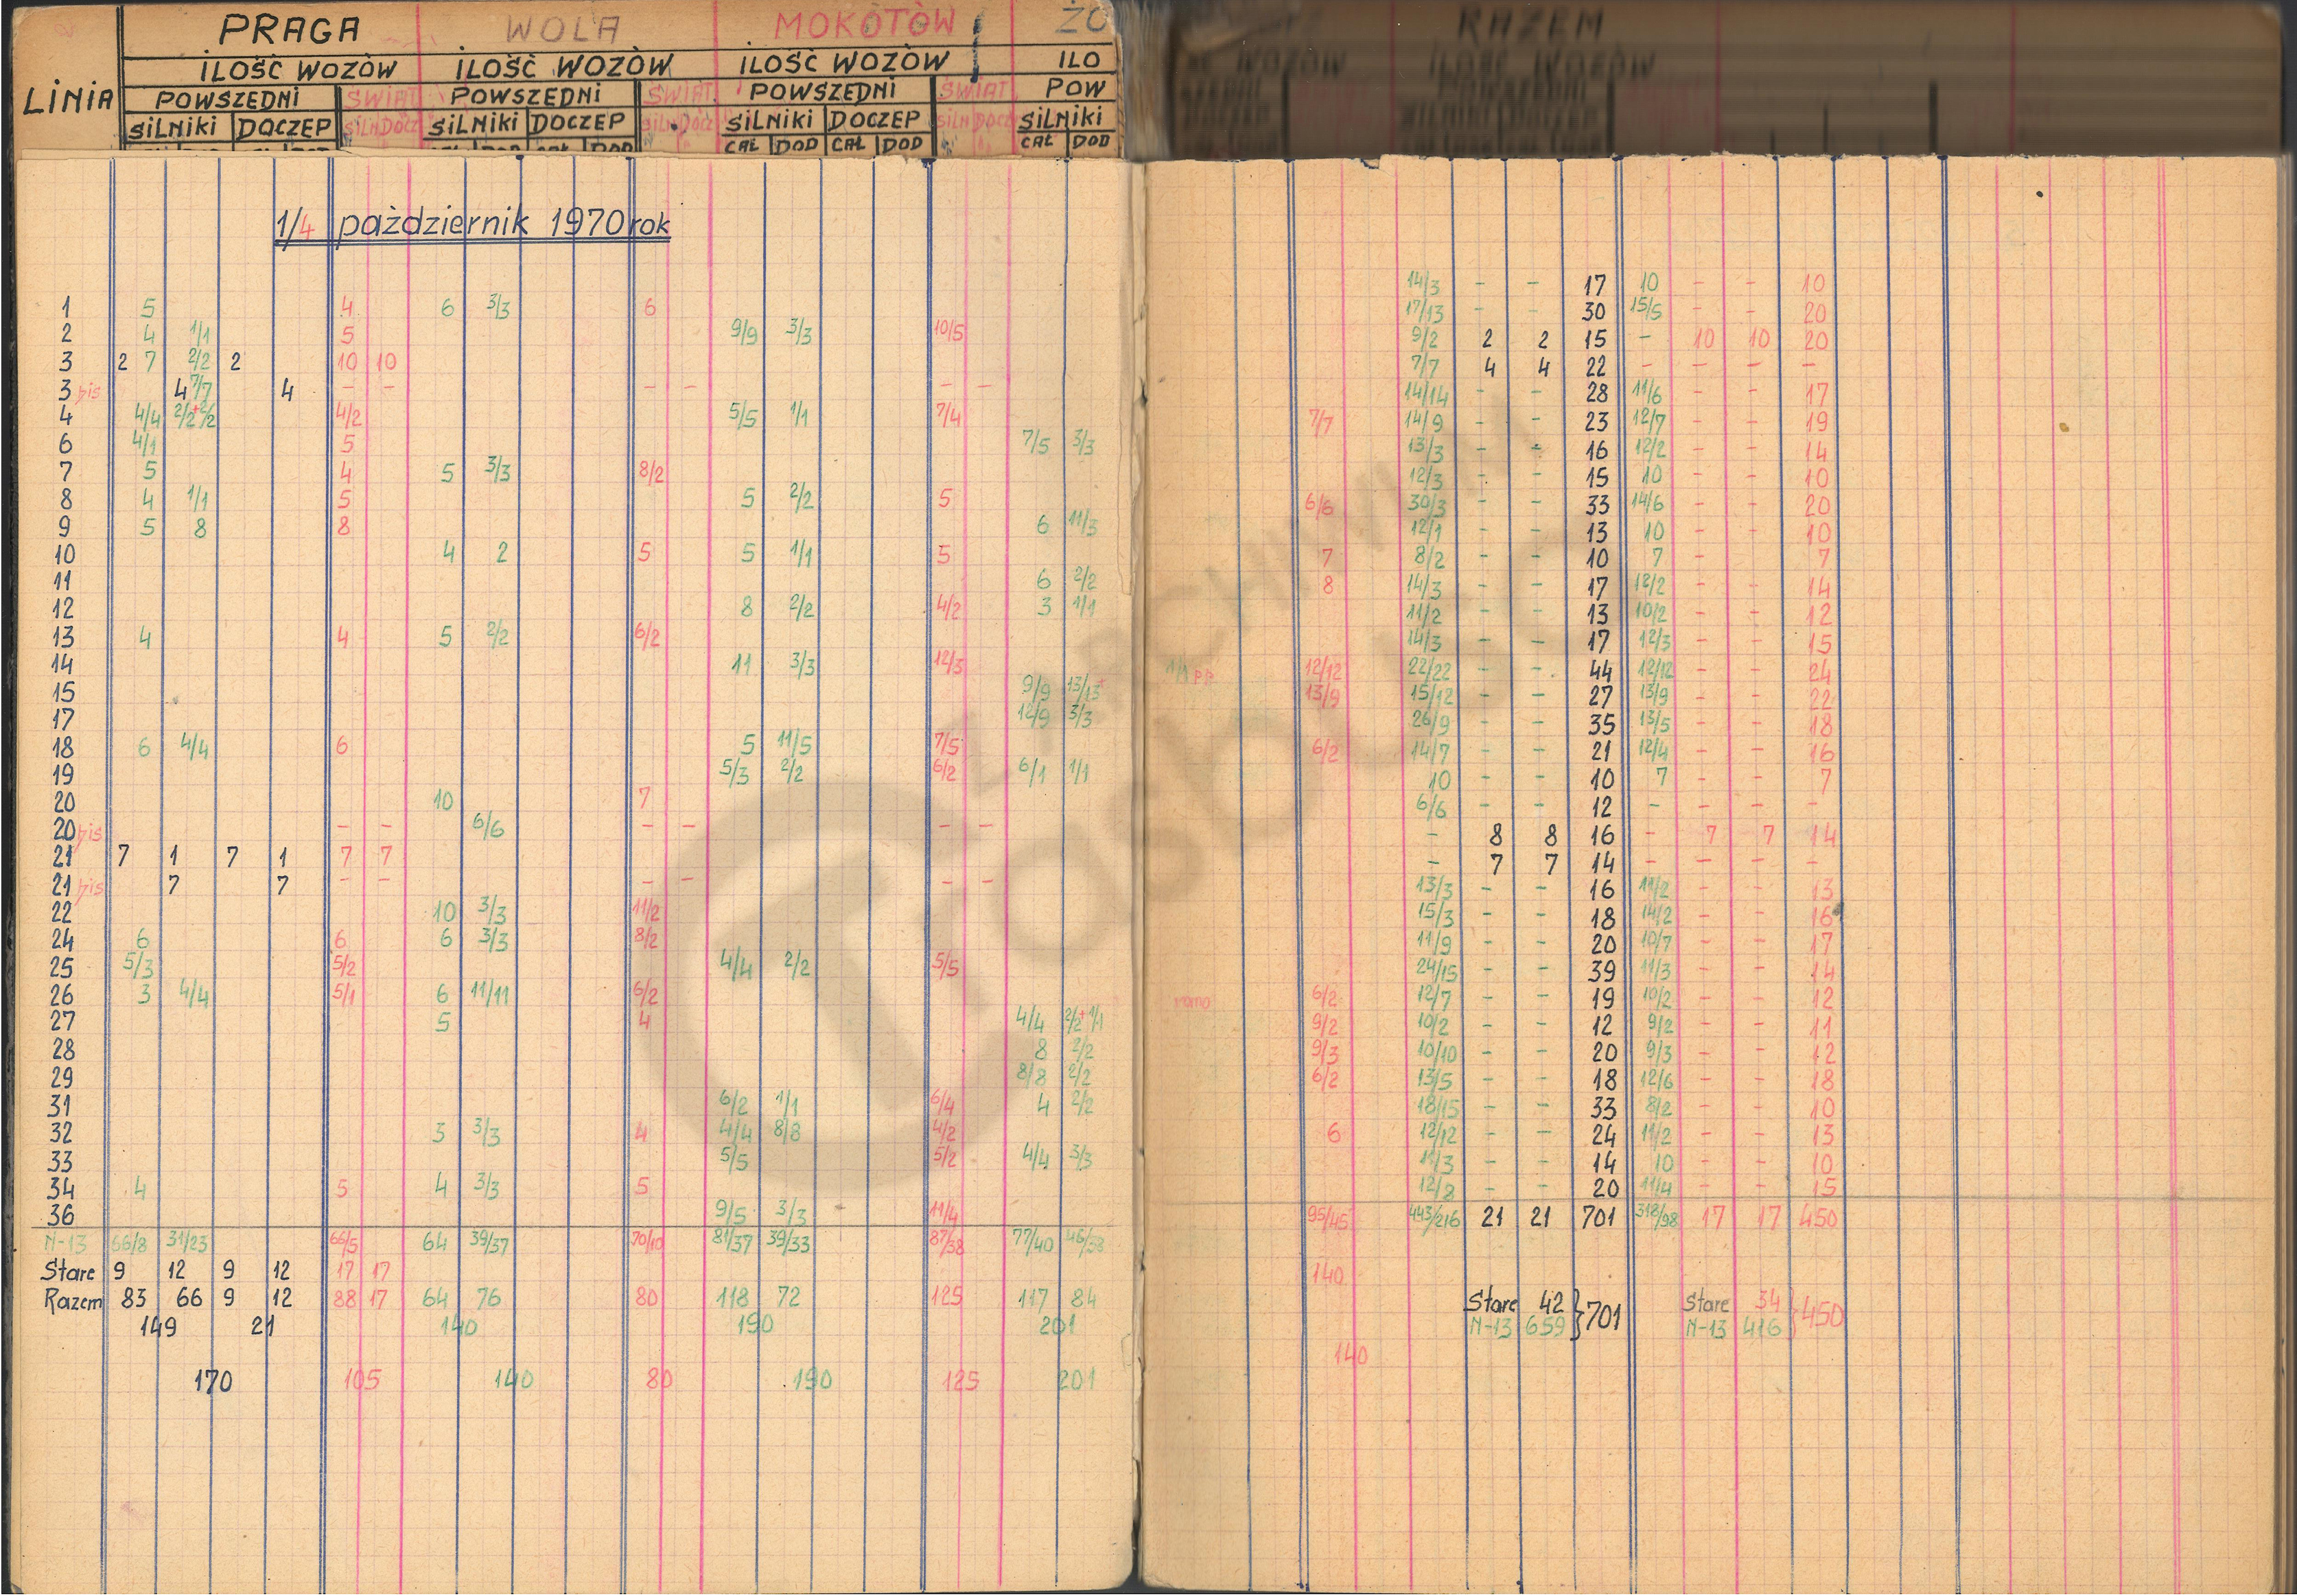 PRAGA WOLA MOKOTÓW ŻO RAZEM
LINIA ILOŚĆ WOZÓW ILOŚĆ WOZÓW ILOŚĆ WOZÓW ILO WOZÓW ILOŚĆ WOZÓW
POWSZEDNI ŚWIĄT POWSZEDNI ŚWIĄT POWSZEDNI ŚWIĄT POW
SILNIKI DOCZEP SILN DOCZ SILNIKI DOCZEP SILN DOCZ SILNIKI DOCZEP SILN DOCZ SILNIKI
CAŁ DOD CAŁ DOD CAŁ DOD
1/4 październik 1970 rok
1 5 4 6 3/3 6 14/3 - - 17 10 - - 10
2 4 1/1 5 9/9 3/3 10/5 17/13 - - 30 15/5 - - 20
3 2 7 2/2 2 10 10 9/2 2 2 15 - 10 10 20
3 bis 4 7/7 4 - - - - - - 7/7 4 4 22 - - - -
4 4/4 2/2+2/2 4/2 5/5 1/1 7/4 14/14 - - 28 11/6 - - 17
6 4/1 5 7/5 3/3 7/7 14/9 - - 23 12/7 - - 19
7 5 4 5 3/3 8/2 13/3 - - 16 12/2 - - 14
8 4 1/1 5 5 2/2 5 12/3 - - 15 10 - - 10
9 5 8 8 6 11/3 6/6 30/3 - - 33 14/6 - - 20
10 4 2 5 5 1/1 5 12/1 - - 13 10 - - 10
11 6 2/2 7 8/2 - - 10 7 - - 7
12 8 2/2 4/2 3 1/1 8 14/3 - - 17 12/2 - - 14
13 4 4 5 2/2 6/2 11/2 - - 13 10/2 - - 12
14 11 3/3 12/3 14/3 - - 17 12/3 - - 15
15 9/9 13/13+ 1/1 pp 12/12 22/22 - - 44 12/12 - - 24
17 12/9 3/3 13/9 15/12 - - 27 13/9 - - 22
18 6 4/4 6 5 11/5 7/5 26/9 - - 35 13/5 - - 18
19 5/3 2/2 6/2 6/1 1/1 6/2 14/7 - - 21 12/4 - - 16
20 10 7 10 - - 10 7 - - 7
20 bis - - 6/6 - - - - 6/6 - - 12 - - - -
21 7 1 7 1 7 7 - 8 8 16 - 7 7 14
21 bis 7 7 - - - - - - - 7 7 14 - - - -
22 10 3/3 11/2 13/3 - - 16 11/2 - - 13
24 6 6 6 3/3 8/2 15/3 - - 18 14/2 - - 16
25 5/3 5/2 4/4 2/2 5/5 11/9 - - 20 10/7 - - 17
26 3 4/4 5/1 6 11/11 6/2 24/15 - - 39 11/3 - - 14
27 5 4 4/4 2/2+1/1 rano 6/2 12/7 - - 19 10/2 - - 12
28 8 2/2 9/2 10/2 - - 12 9/2 - - 11
29 8/8 2/2 9/3 10/10 - - 20 9/3 - - 12
31 6/2 1/1 6/4 4 2/2 6/2 13/5 - - 18 12/6 - - 18
32 3 3/3 4 4/4 8/8 4/2 18/15 - - 33 8/2 - - 10
33 5/5 5/2 4/4 3/3 6 12/12 - - 24 11/2 - - 13
34 4 5 4 3/3 5 11/3 - - 14 10 - - 10
36 9/5 3/3 11/4 12/8 - - 20 11/4 - - 15
N-13 66/8 31/23 66/5 64 39/37 70/10 81/37 39/33 87/38 77/40 95/45 443/216 21 21 701 318/98 17 17 450
Stare 9 12 9 12 17 17 140
Razem 83 66 9 12 88 17 64 76 80 118 72 125 117 84 Stare 42 } 701 Stare 34 } 450
149 21 140 190 201 N-13 659 N-13 416
140
170 105 140 80 190 125 201